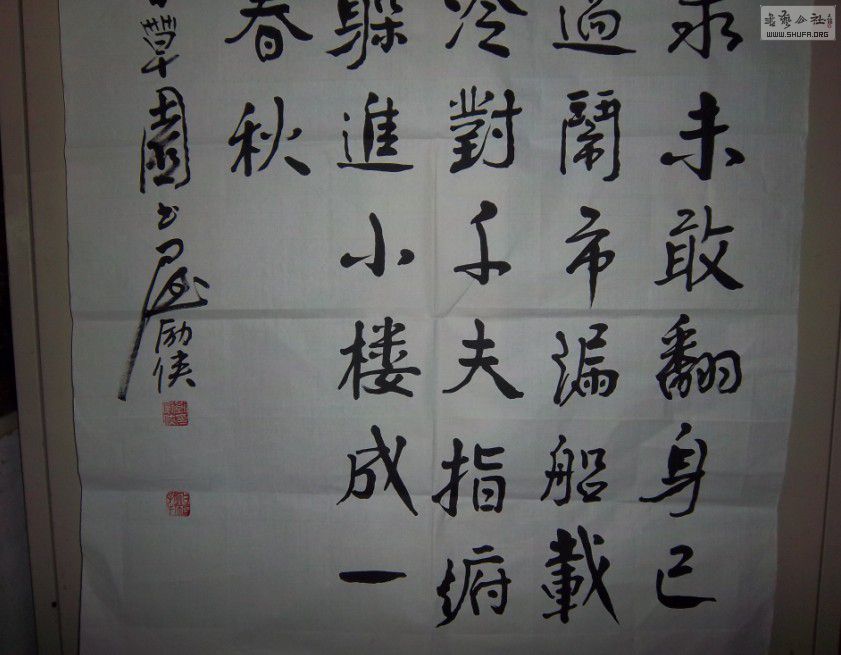 求未敢翻身已
過鬧市漏船載
冷對千夫指俯
躲進小楼成一
春秋
草園书屋
励侠
書藝公社
WWW.SHUFA.ORG